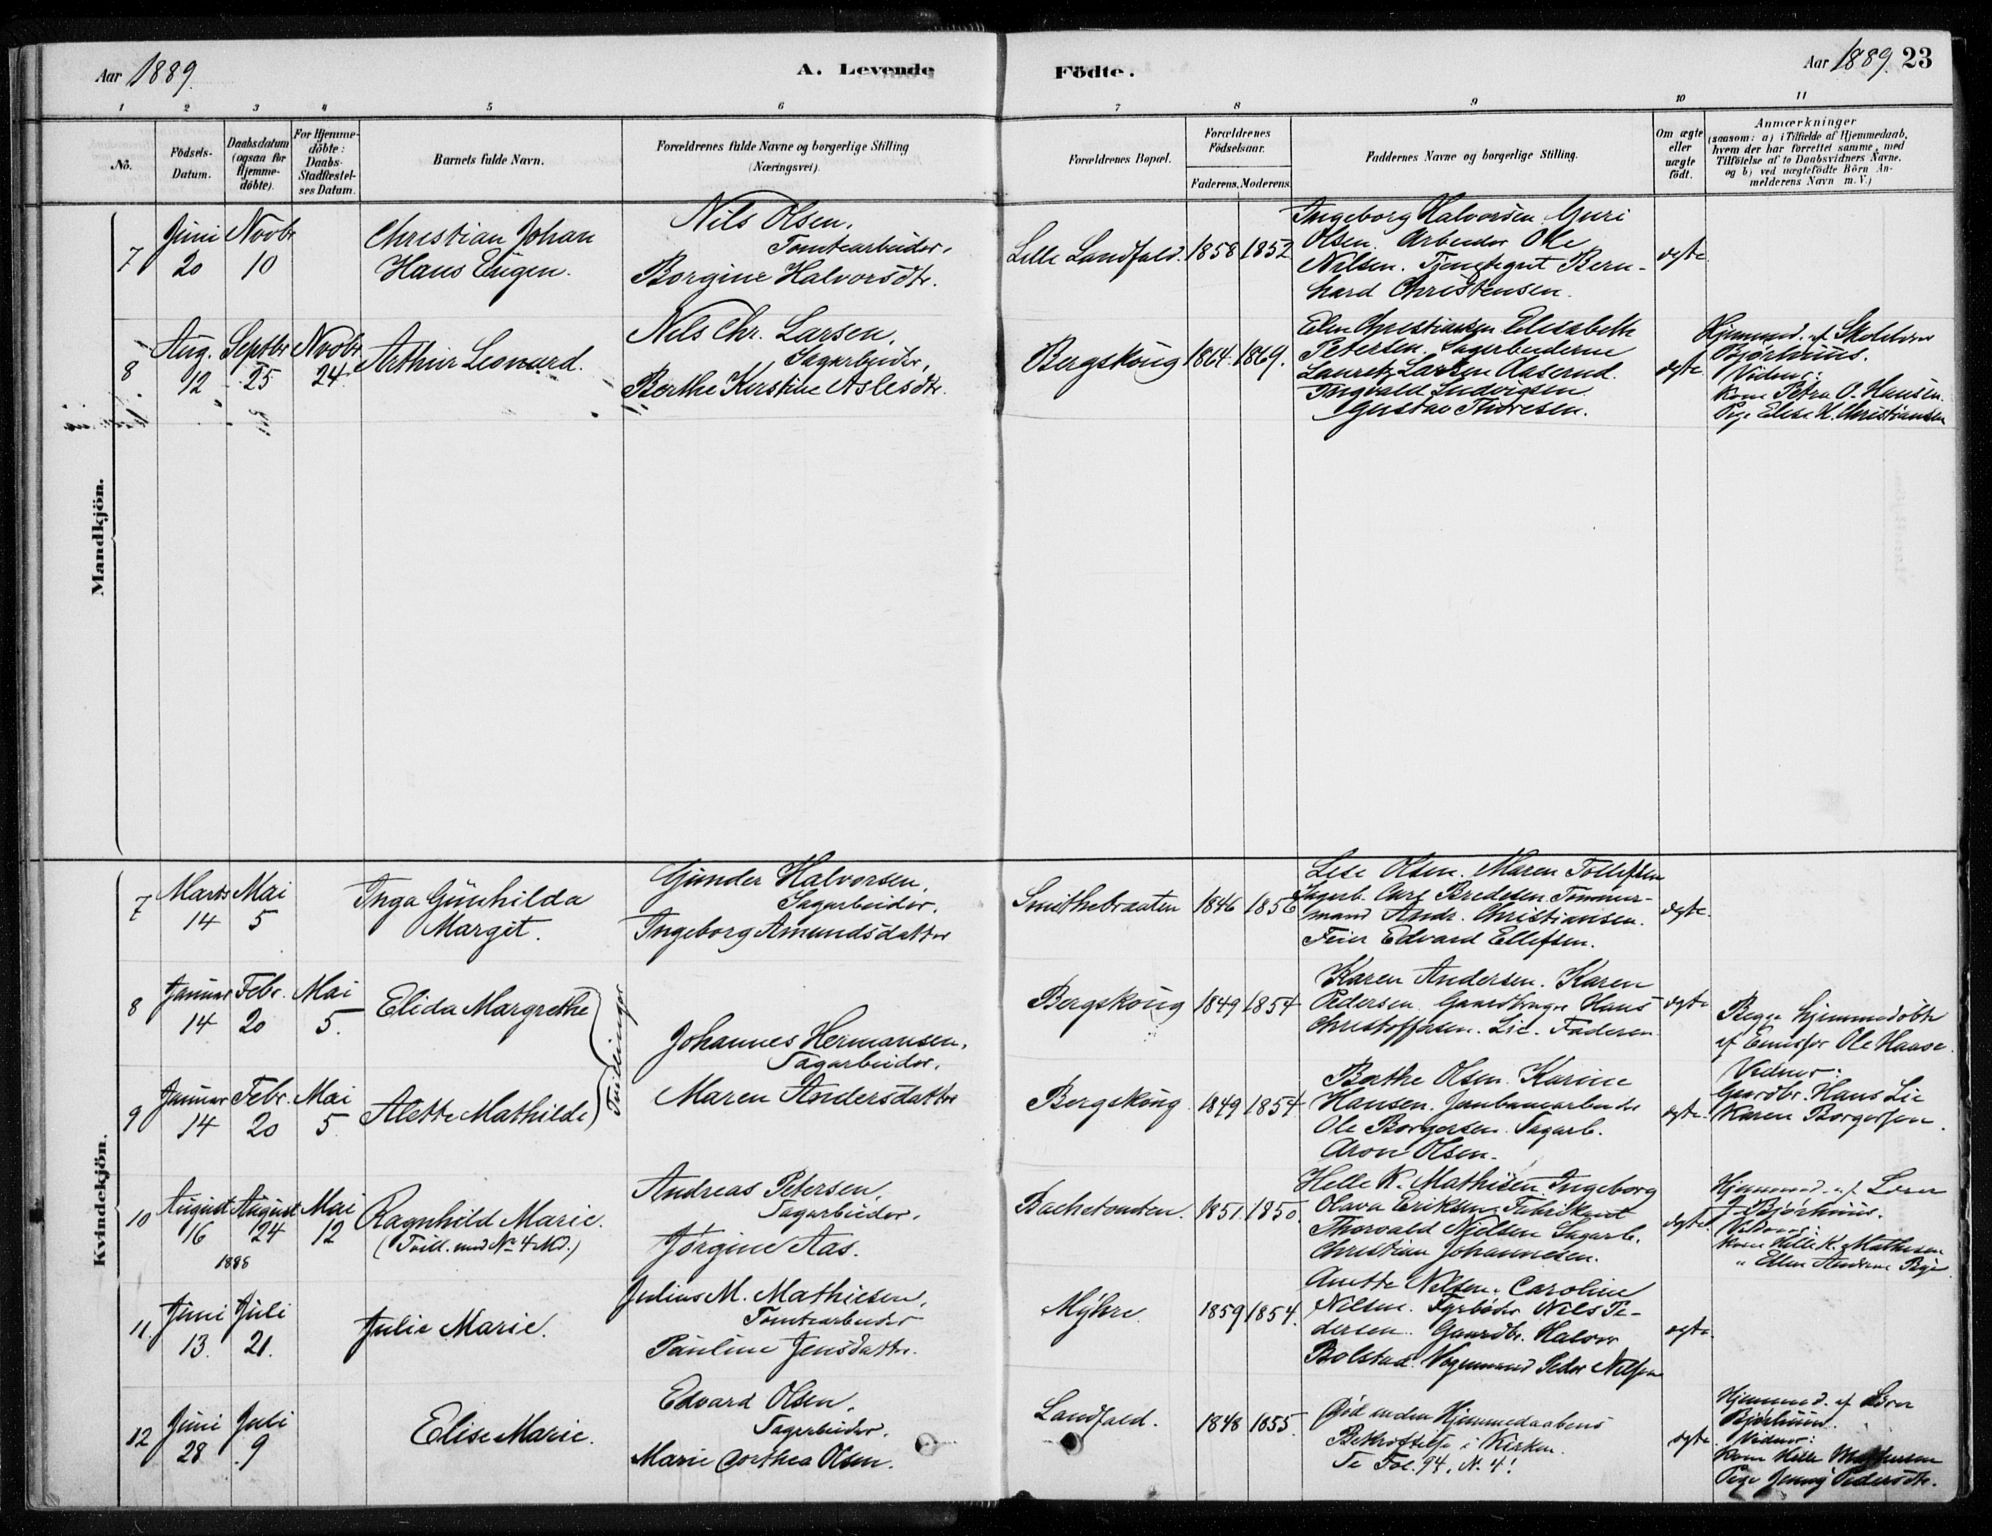 Aar 1889.
A. Levende Födte.
Aar 1889. 23
1 2 3 4 5 6 7 8 9 10 11
No.
Födsels-Datum.
Daabsdatum (ogsaa for Hjemme-döbte).
For Hjemme-döbte: Daabs-Stadfæstel-ses Datum.
Barnets fulde Navn.
Forældrenes fulde Navne og borgerlige Stilling (Næringsvei)
Forældrenes Bopæl.
Forældrenes Födselsaar.
Faderens. Moderens.
Faddernes Navne og borgerlige Stilling.
Om ægte eller uægte födt.
Anmærkninger
(saasom: a) i Tilfælde af Hjemmedaab,
hvem der har forrettet samme, med
Tilföielse af to Daabsvidners Navne,
og b) ved uægtefödte Börn An-
melderens Navn m. V.)
Mandkjön.
7 Juni 20 Novbr 10
Christian Johan
Hans Eugen.
Nils Olsen,
Tomtearbeider,
Borgine Halvorsdtr.
Lille Landfald. 1858 1852
Ingeborg Halvorsen Guri
Olsen. Arbeider Ole
Nilsen. Tjenestegut Bern-
hard Christensen.
ægte.
8 Aug. 12 Septbr 25 Novbr 24
Arthur Leonard.
Nils Chr. Larsen,
Sagarbeider,
Berthe Kirstine Aslesdtr.
Bergskoug 1864. 1869.
Elen Christiansen Elisabeth
Petersen. Sagarbeiderne
Lauretz Larsen Aaserud.
Ingvald Ludvigsen
Gustav Thoresen.
ægte.
Hjemmed. af Skolelærer
Björhuus.
Vidner:
Kone Petra O. Hansen.
Pige Elise K. Christiansen
Kvindekjön.
7 Marts 14 Mai 5
Inga Gunhilda
Margit.
Gunder Halvorsen,
Sagarbeider.
Ingeborg Amundsdatter
Smithebraaten 1846 1856
Lise Olsen. Maren Tollefsen
Sagarb. Carl Bredesen. Tömmer-
mand Andr. Christiansen.
Feier Edvard Ellefsen.
ægte.
8 Januar 14 Febr. 20 Mai 5.
Elida Margrethe
Tvillinger
Johannes Hermansen,
Sagarbeider,
Maren Andersdatter
Bergskoug 1849 1854
Karen Andersen. Karen
Pedersen. Gaardbruger Hans
Christoffersen. Lie. Faderen
ægte
Begge hjemmedöbte
af Emissær Ole Haase.
Vidner:
Gaardbr. Hans Lie
Karen Borgersen.
9 Januar 14 Febr. 20 Mai 5
Alette Mathilde
Bergskoug 1849 1854
Berthe Olsen. Karine
Hansen. Jernbanearbeider
Ole Borgersen. Sagarb.
Aron Olsen.
ægte.
10 August 16 August 24 Mai 12
1888
Ragnhild Marie.
(Tvill. med No 4 Md.)
Andreas Petersen,
Sagarbeider,
Jørgine Aas.
Bachetoudten. 1851. 1850.
Helle K. Mathisen Ingeborg
Olava Eriksen. Fabrikant
Thorvald Nielsen Sagarb.
Christian Johannesen.
ægte.
Hjemmed. af Lærer
Björhuus.
Vidner:
Kone Helle K. Mathisen
11. Juni 13. Juli 21.
Julie Marie.
Julius M. Mathiesen,
Tomtearbeider
Pauline Jensdatter.
Myhre. 1859 1854.
Anette Nilsen. Caroline
Nilsen. Fyrböder Nils Pe-
dersen. Gaardbr. Halvor
Bolstad. Vognmand Peder Nilsen
ægte.
12 Juni 28 Juli 9
Elise Marie.
Edvard Olsen,
Sagarbeider,
Marie Dorthea Olsen.
Landfald. 1848 1855.
Död inden Hjemmedaabens
Bekræftelse i Kirken.
Se Fol. 94, N. 4!
ægte.
Hjemmed. af Lærer
Björhuus.
Vidner:
Kone Helle Mathiesen
Pige Jenny Pedersdtr.